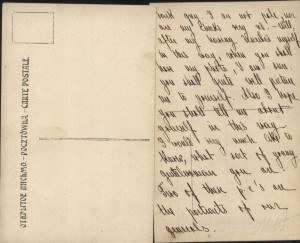 ОТКРЫТОЕ ПИСЬМО. — POCZTÓWKA — CARTE POSTALE
you I am not pale, nor
are my cheeks very red. Will
after my having described myself
in this way, when you shall
have my photo, I am sure
you shall quite well picture
me to yourself. Also I hope
you shall tell me about
yourself in this way.
I would very much like to
know, what sort of young
gentleman you are
Two of them p.c's are
the portraits of our
generals.